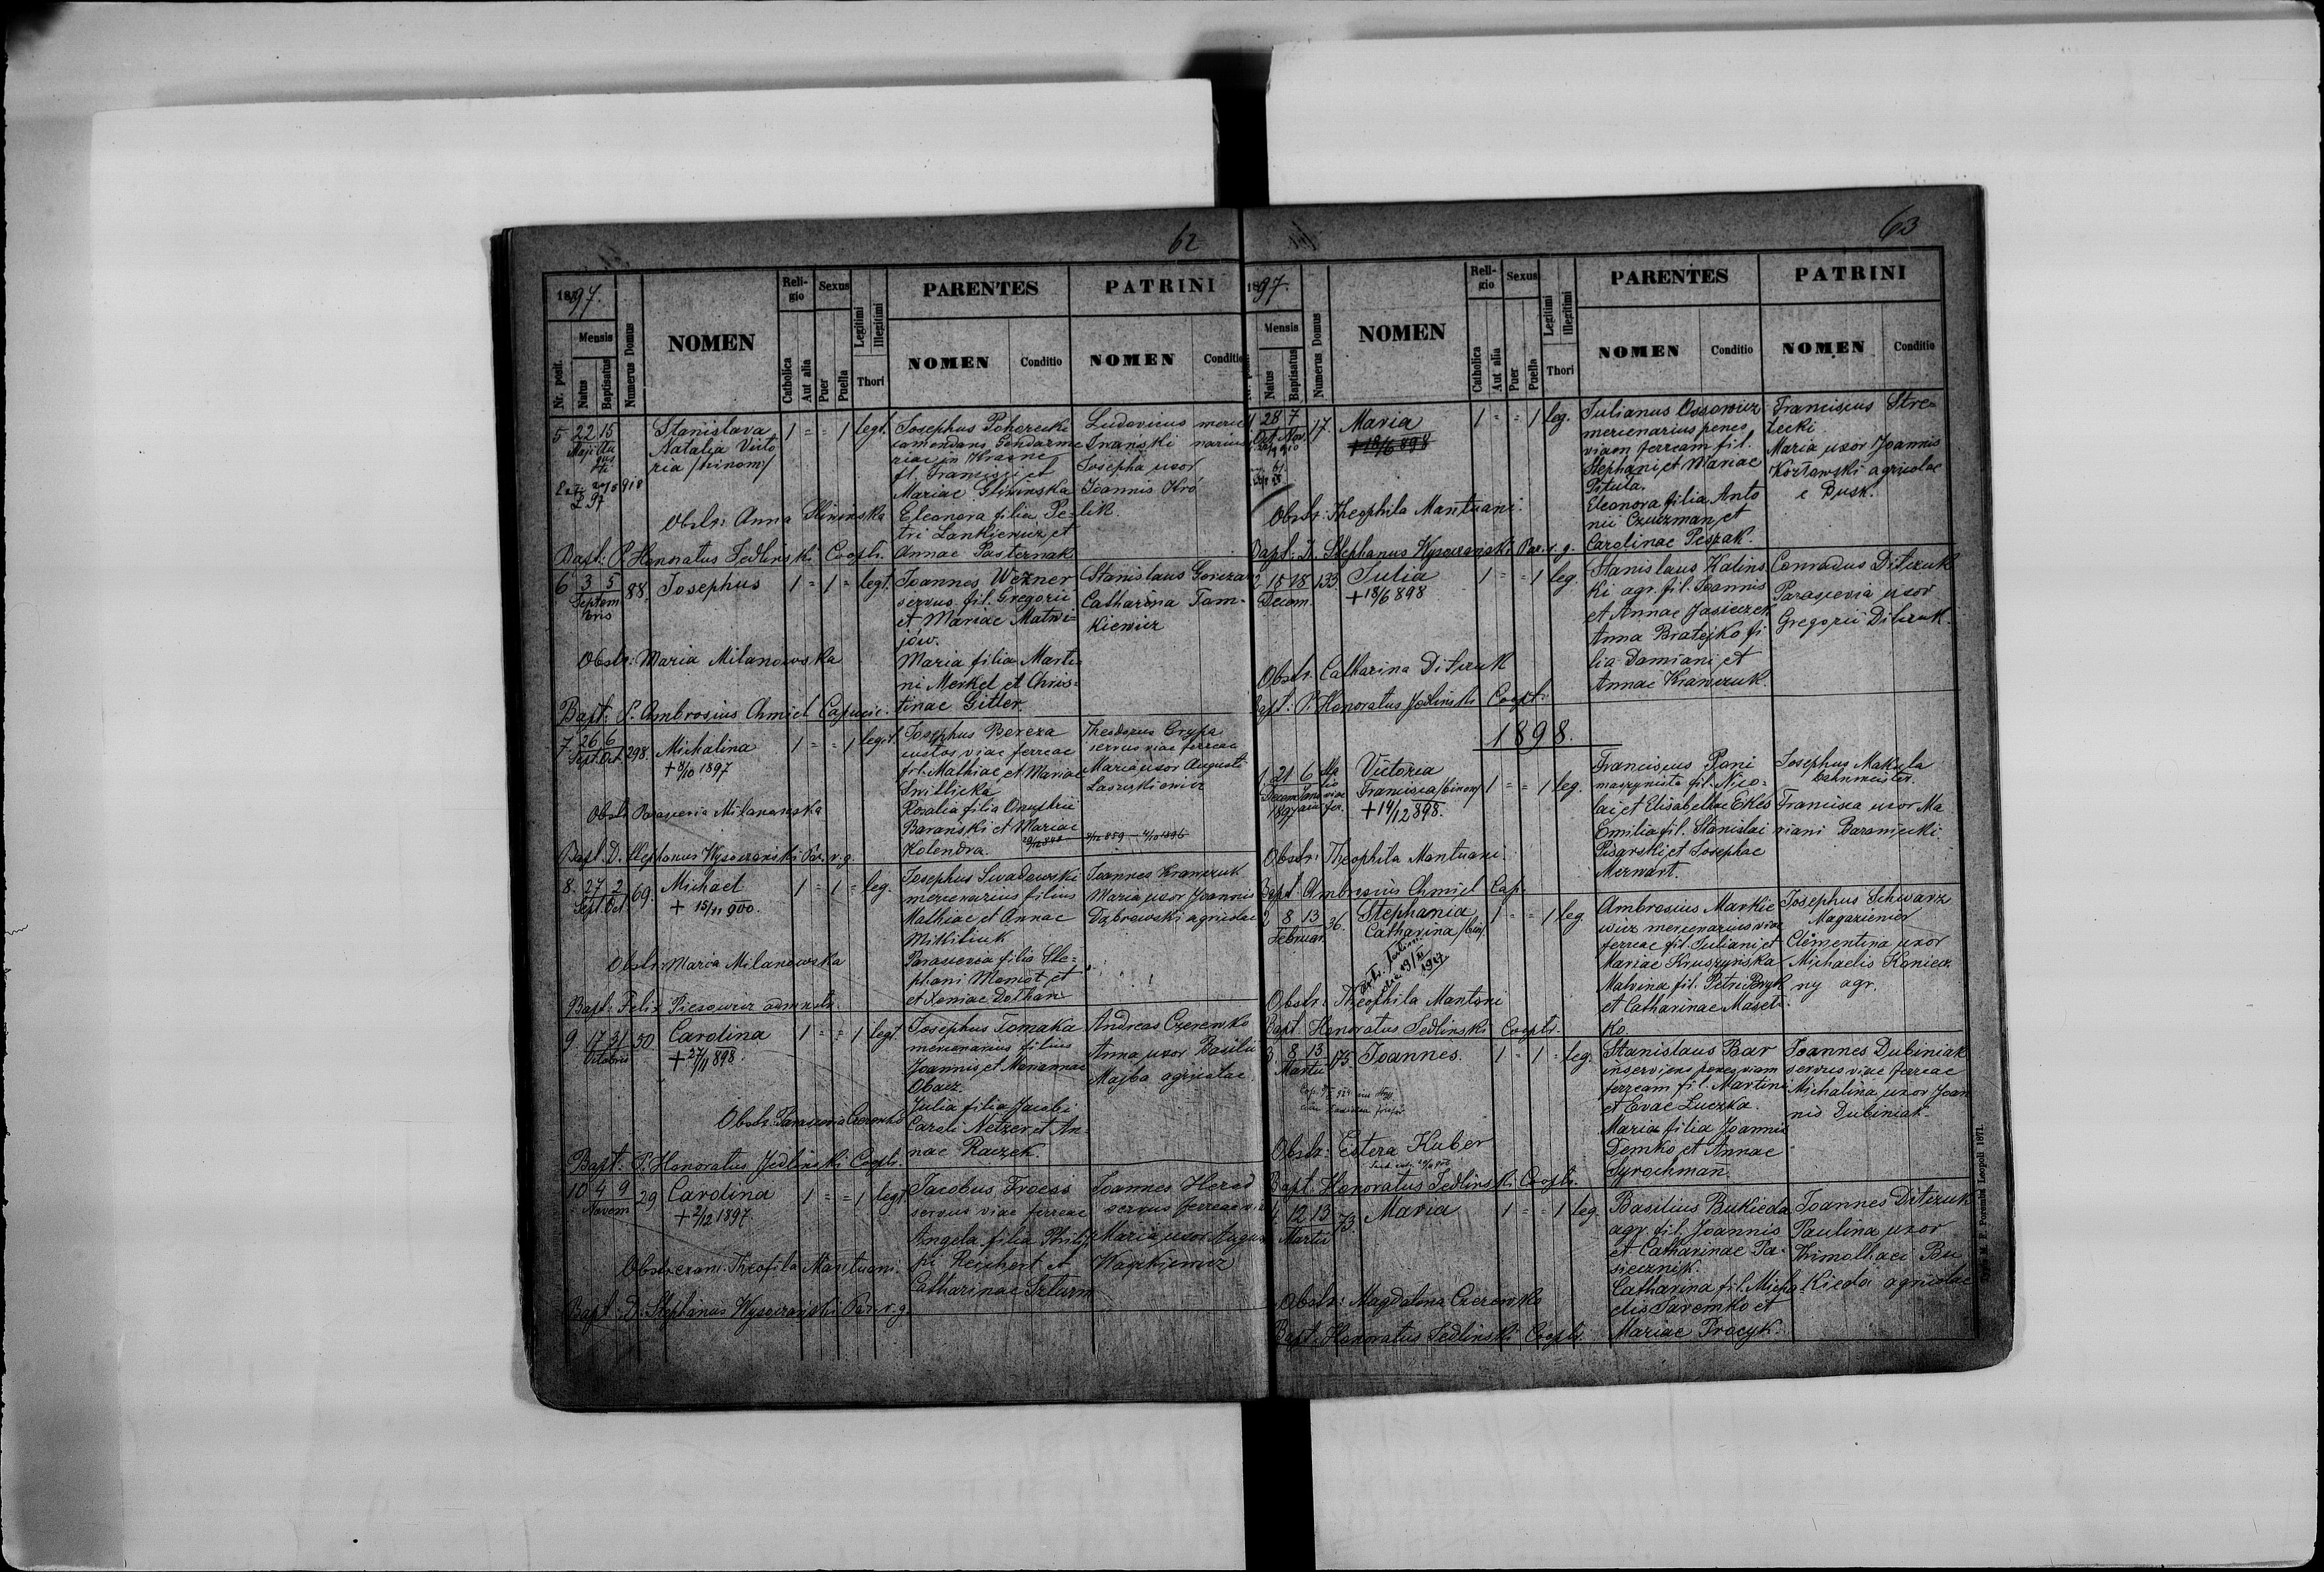 62
1897.
Nr. posit.
Mensis
Natus
Baptisatus
Numerus Domus
NOMEN
Reli-
gio
Catholica
Aut alia
Sexus
Puer
Puella
Legitimi
Illegitimi
Thori
PARENTES
NOMEN
Conditio
PATRINI
NOMEN
Conditio
5 22 15
Maji Au
gus
ti
Stanislava
Natalia Victo
ria /trinom/
1 = = 1 legt.
Josephus Pohorecki
comendans Gendarme
riae in Krasne
fl. Francisci et
Mariae Glininska
Eleonora filia Pe=
tri Lankiewicz et
Annae Pasternak
Ludovicus merce
Iwanski narius
Josepha uxor
Joannis Kró
lik.
Obstr: Anna Slininska
Bapt: P. Honoratus Jedlinski Cooptr.
6 3 5
Septem
bris
88.
Josephus
1 = 1 = legt.
Joannes Wezner
servus fil. Gregorii
et Mariae Matwi=
jów.
Maria filia Marti
ni Merkel et Chris=
tinae Gitler.
Stanislaus Gorczan
Catharina Tom-
kiewicz
Obstr: Maria Milanowska
Bapt: P. Ambrosius Chmiel Capucic.
7. 26 6
Sept. Oct.
298.
Michalina
+ 8/10 1897
1 = = 1 legit.
Josephus Bereza
custos viae ferreae
fil. Mathiae et Mariae
Switlicka
Rosalia filia Onuphrii
Barański et Mariae
Kolendra.
Theodorus Gryfa
servus viae ferreae
Maria uxor Augusti
Laszukiewicz
Obstr. Parascevia Milanowska
Bapt. D. Stephanus Wysoczanski Par. r. g.
8. 27 2
Sept. Oct.
69.
Michael
+ 15/11 900.
1 = 1 = leg.
Josephus Swadowski
mercenarius filius
Mathiae et Annae
Mikiliuk
Parascevia filia Ste=
phani Memot et
et Xeniae Dothan
Joannes Krawczuk
Maria uxor Joannis
Dąbrowski agricolae
Obstr: Maria Milanowska
Bapt: Felix Piesowicz admnstr.
9. 17 31
Octobris
50
Carolina
+ 27/11 898.
1 = = 1 legt
Josephus Tomaka
mercenarius filius
Joannis et Mariannae
Obacz
Julia filia Jacobi
Caroli Netzer et An=
nae Raczek.
Andreas Czerewko
Anna uxor Basilii
Majba agricolae
Obstr: Parascevia Czerewko
Bapt: P. Honoratus Jedlinski Cooptr.
10 4 9
Novem
29
Carolina
+ 2/12 1897
1 = = 1 legt
Jacobus Froess
servus viae ferreae
Angela filia Philip
pi Reichert et
Catharinae Szturm
Joannes Herod
servus ferreae
Maria uxor Augus
Waszkiewicz
Obstr. exam. Theofila Mantuani.
Bapt: D. Stephanus Wysoczański Par. r. g.
63
1897.
Mensis
Natus
Baptisatus
Numerus Domus
NOMEN
Reli-
gio
Catholica
Aut alia
Sexus
Puer
Puella
Legitimi
Illegitimi
Thori
PARENTES
NOMEN
Conditio
PATRINI
NOMEN
Conditio
1 28 7
Oct. Nov.
17.
Maria
+ 18/6 898
1 = = 1 leg.
Julianus Ossowicz
mercenarius penes
viam ferream fil.
Stephani et Mariae
Pitula.
Eleonora filia Anto
nii Czuczman et
Carolinae Peszak.
Franciscus Stre=
lecki
Maria uxor Joannis
Kozłowski agricolae
e Busk.
Obstr: Theophila Mantuani.
Bapt: D. Stephanus Wysoczanski Par. r. g.
2 15 18
Decem.
133.
Julia
+ 18/6 898
1 = = 1 leg.
Stanislaus Kalins
ki agr. fil. Joannis
et Annae Jasieczek
Anna Bratejko fi
lia Damiani et
Annae Krawczuk.
Conradus Ditczuk
Parascevia uxor
Gregorii Ditczuk.
Obstr. Catharina Ditczuk
Bapt: P. Honoratus Jedlinski Cooptr.
1898.
1. 21 6
Decem Janu
1897 arii
Victoria
Francisca /binom/
+ 14/12 898.
1 = = 1 leg.
Franciscus Pani
maszynista fil. Nico=
lai et Elisabethae Ekles
Emilia fil. Stanislai
Pisarski et Josephae
Merwart.
Josephus Makula
bahnmeister.
Francisca uxor Ma
riani Baraniecki.
Obstr: Theophila Mantuani.
Bapt: Ambrosius Chmiel Cap.
2 8 13
Februar.
36.
Stephania
Catharina /bin/
1 = = 1 leg
Ambrosius Markie
wicz mercenarius viae
ferreae fil. Juliani et
Mariae Kruszyńska
Malvina fil. Petri Panyk
et Catharinae Maset=
ko.
Josephus Schwarz
Magazienier
Clementina uxor
Michaelis Koniecz
ny agr.
Obstr: Theophila Mantoni
Bapt. Honoratus Jedlinski Cooptr.
3. 8 13
Martii
173.
Joannes.
1 = 1 = leg.
Stanislaus Bar
inserviens penes viam
ferream fil. Martini
et Evae Luczka.
Maria filia Joannis
Demko et Annae
Syrochman.
Joannes Dubiniak
servus viae ferreae
Michalina uxor Joan
nis Dubiniak.
Obstr: Estera Huber
Bapt. Honoratus Jedlinski Cooptr.
4. 12 13
Martii
73.
Maria
1 = = 1 leg
Basilius Bukieda
agr. fil. Joannis
et Catharinae Pa-
siecznik.
Catharina fil. Micha
elis Jaremko et
Mariae Procyk.
Joannes Ditczuk
Paulina uxor
Thimothaei Bu
kieda agricolae
Obstr: Magdalena Czerewko
Bapt. Honoratus Jedlinski Cooptr.
Typ. M. F. Poremba Leopoli 1871.